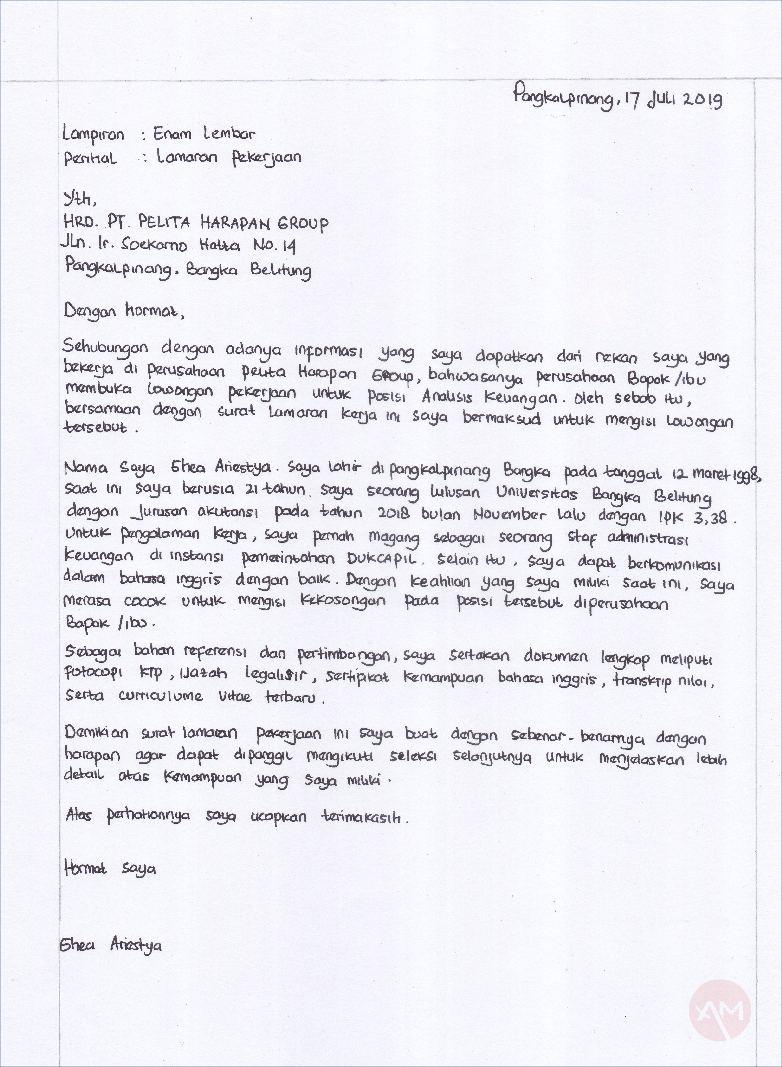 Pangkalpinang, 17 Juli 2019
Lampiran : Enam Lembar
Perihal : Lamaran Pekerjaan
Yth,
HRD. PT. PELITA HARAPAN GROUP
Jln. Ir. Soekarno Hatta No. 14
Pangkalpinang. Bangka Belitung
Dengan hormat,
Sehubungan dengan adanya informasi yang saya dapatkan dari rekan saya yang
bekerja di perusahaan Pelita Harapan Group, bahwasanya perusahaan Bapak/ibu
membuka lowongan pekerjaan untuk posisi Analisis Keuangan. Oleh sebab itu,
bersamaan dengan surat lamaran kerja ini saya bermaksud untuk mengisi lowongan
tersebut.
Nama Saya Ghea Ariestya. Saya lahir di pangkalpinang Bangka pada tanggal 12 maret 1998,
saat ini saya berusia 21 tahun. Saya seorang lulusan Universitas Bangka Belitung
dengan Jurusan akutansi pada tahun 2018 bulan November lalu dengan IPK 3,38.
Untuk pengalaman kerja, saya pernah magang sebagai seorang staf administrasi
keuangan di instansi pemerintahan DUKCAPIL. Selain itu, saya dapat berkomunikasi
dalam bahasa inggris dengan baik. Dengan keahlian yang saya miliki saat ini, saya
merasa cocok untuk mengisi kekosongan pada posisi tersebut diperusahaan
Bapak/ibu.
Sebagai bahan referensi dan pertimbangan, saya sertakan dokumen lengkap meliputi
fotocopi KTP, ijazah legalisir, sertipikat kemampuan bahasa inggris, transkrip nilai,
serta curriculume vitae terbaru.
Demikian surat lamaran pekerjaan ini saya buat dengan sebenar-benarnya dengan
harapan agar dapat dipanggil mengikuti seleksi selanjutnya untuk menjelaskan lebih
detail atas kemampuan yang saya miliki.
Atas perhatiannya saya ucapkan terimakasih.
Hormat saya
Ghea Ariestya
AM